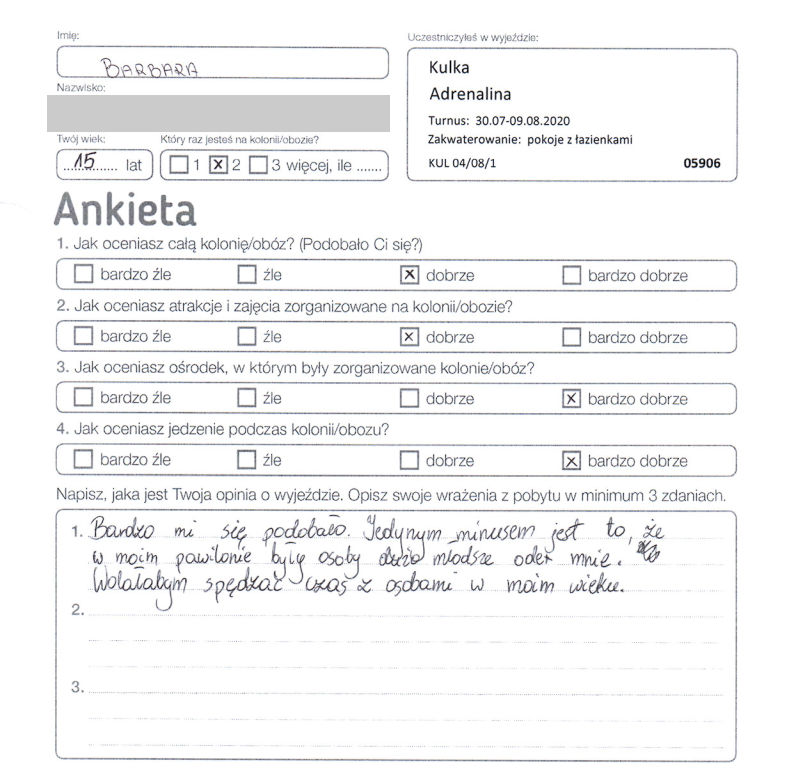 Imię:
BARBARA
Nazwisko:
Twój wiek:
15 lat
Który raz jesteś na kolonii/obozie?
1 x 2 3 więcej, ile .......
Uczestniczyłeś w wyjeździe:
Kulka
Adrenalina
Turnus: 30.07-09.08.2020
Zakwaterowanie: pokoje z łazienkami
KUL 04/08/1 05906
Ankieta
1. Jak oceniasz całą kolonię/obóz? (Podobało Ci się?)
bardzo źle źle x dobrze bardzo dobrze
2. Jak oceniasz atrakcje i zajęcia zorganizowane na kolonii/obozie?
bardzo źle źle x dobrze bardzo dobrze
3. Jak oceniasz ośrodek, w którym były zorganizowane kolonie/obóz?
bardzo źle źle dobrze x bardzo dobrze
4. Jak oceniasz jedzenie podczas kolonii/obozu?
bardzo źle źle dobrze x bardzo dobrze
Napisz, jaka jest Twoja opinia o wyjeździe. Opisz swoje wrażenia z pobytu w minimum 3 zdaniach.
1. Bardzo mi się podobało. Jedynym minusem jest to, że
w moim pawilonie były osoby młodsze odem mnie.
Wolałabym spędzać czas z osobami w moim wieku.
2.
3.